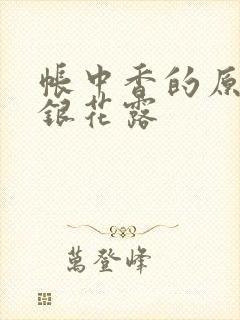 帳中香的原
銀花露
萬登峰